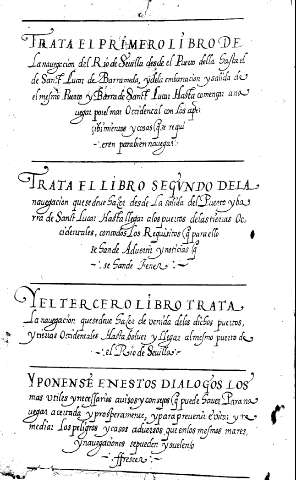 TRATA EL PRIMERO LIBRO DE
La navegacion del Rio de Sevilla desde el Puerto della hasta el
de Sanct Lucar de Barrameda, y dela embarcacion y salida de
el mismo Puerto y Barra de Sanct Lucar Hasta començar a na
vegar por el mar Occidental con los aper
cibimientos y cosas q se requi
eren para bien navegar.
TRATA EL LIBRO SEGVNDO DE LA
navegacion que se deve hazer desde La salida del Puerto y ba
rra de Sanct Lucar Hasta llegar a los puertos de las tierras Oc
cidentales, con todos Los Requisitos q para ello
se han de Advertir y noticias q
se han de Tener
Y EL TERCERO LIBRO TRATA
La navegacion que se deve hazer de venida delos dichos puertos,
y tierras Occidentales Hasta bolver y llegar al mesmo puerto de
el Rio de Sevilla
Y PONENSE EN ESTOS DIALOGOS LOS
mas utiles y necessarios avisos y consejos q puede haver Para na
vegar acertada y prosperamente, y para prevenir evitar y re
mediar Los peligros y casos adversos que en los mesmos mares
y navegaciones se pueden y suelen
offrescer